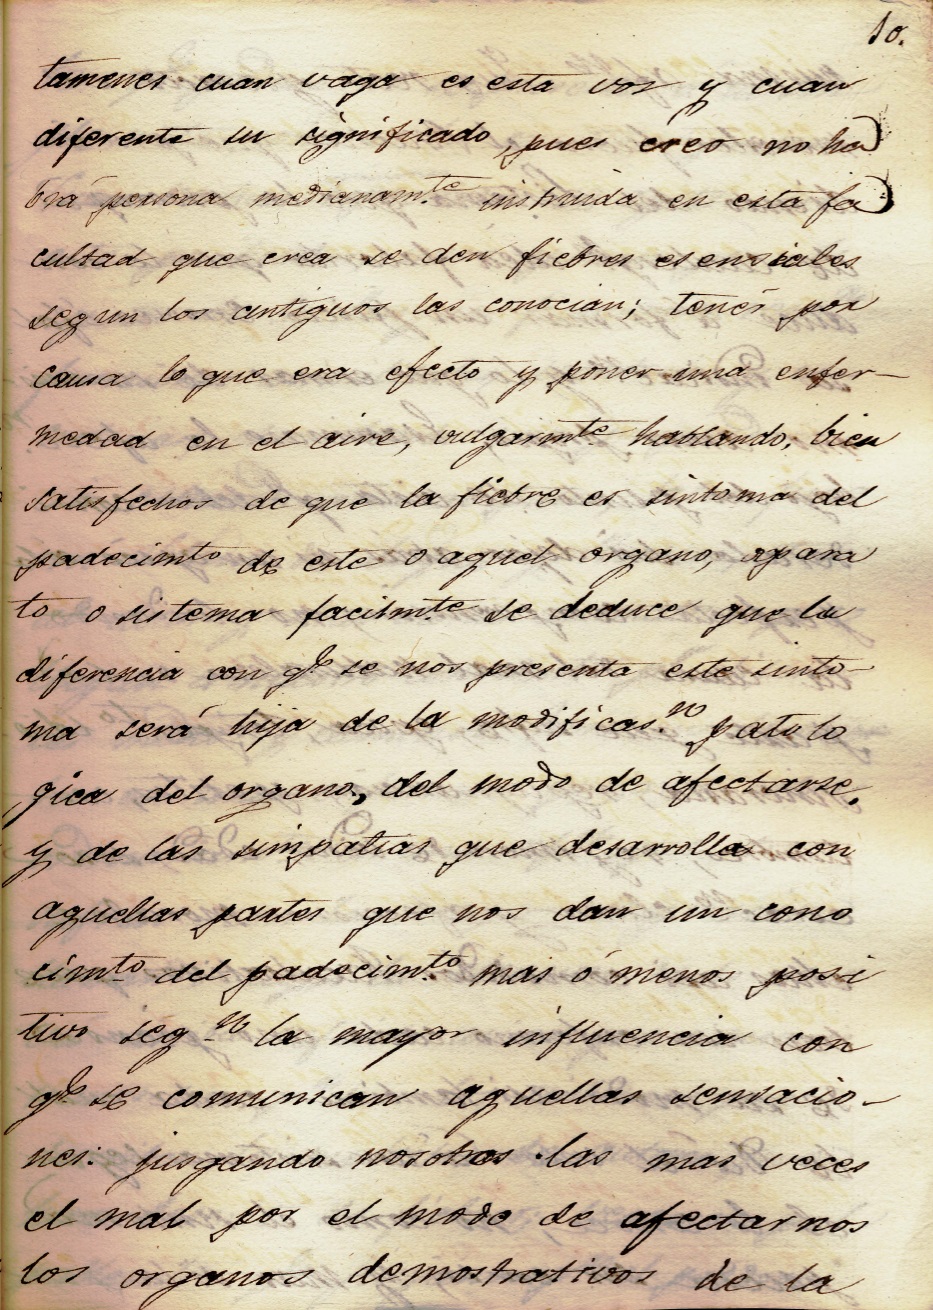 10.
tamenes cuan vaga es esta vos y cuan
diferente su significado, pues creo no ha
brá persona medianam.te instruida en esta fa
cultad que crea se den fiebres esensiales
segun los antiguos las conocian; tener por
causa lo que era efecto y poner una enfer-
medad en el aire, vulgarmte hablando; bien
satisfechos de que la fiebre es sintoma del
padecimto de este o aquel organo, apara
to o sistema facilm.te se deduce que la
diferencia con qe se nos presenta este sinto
ma será hija de la modificas.n patolo
gica del organo, del modo de afectarse,
y de las simpatias que desarrolla con
aquellas partes que nos dan un cono
cimto del padecim.to mas ó menos posi
tivo seg.n la mayor influencia con
qe se comunican aquellas sensacio-
nes: jusgando nosotros las mas veces
el mal por el modo de afectarnos
los organos demostrativos de la